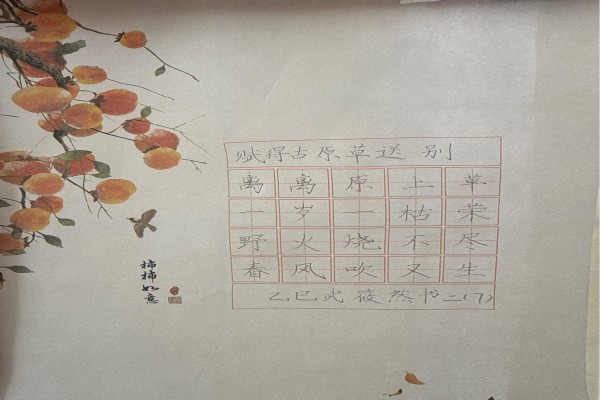 赋得古原草送别
离离原上草
一岁一枯荣
野火烧不尽
春风吹又生
乙巳武筱然书二(7)
柿柿如意